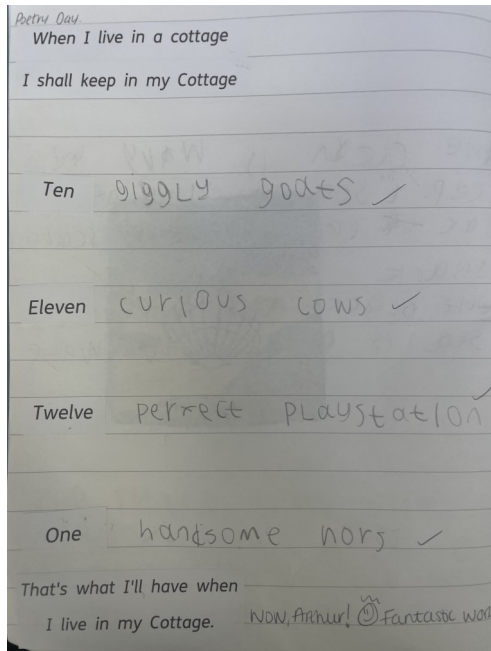 Poetry Day.
When I live in a cottage
I shall keep in my Cottage
Ten giggly goats
Eleven curious cows
Twelve perfect playstation
One handsome hors
That's what I'll have when
I live in my Cottage. Wow, Arthur! Fantastic